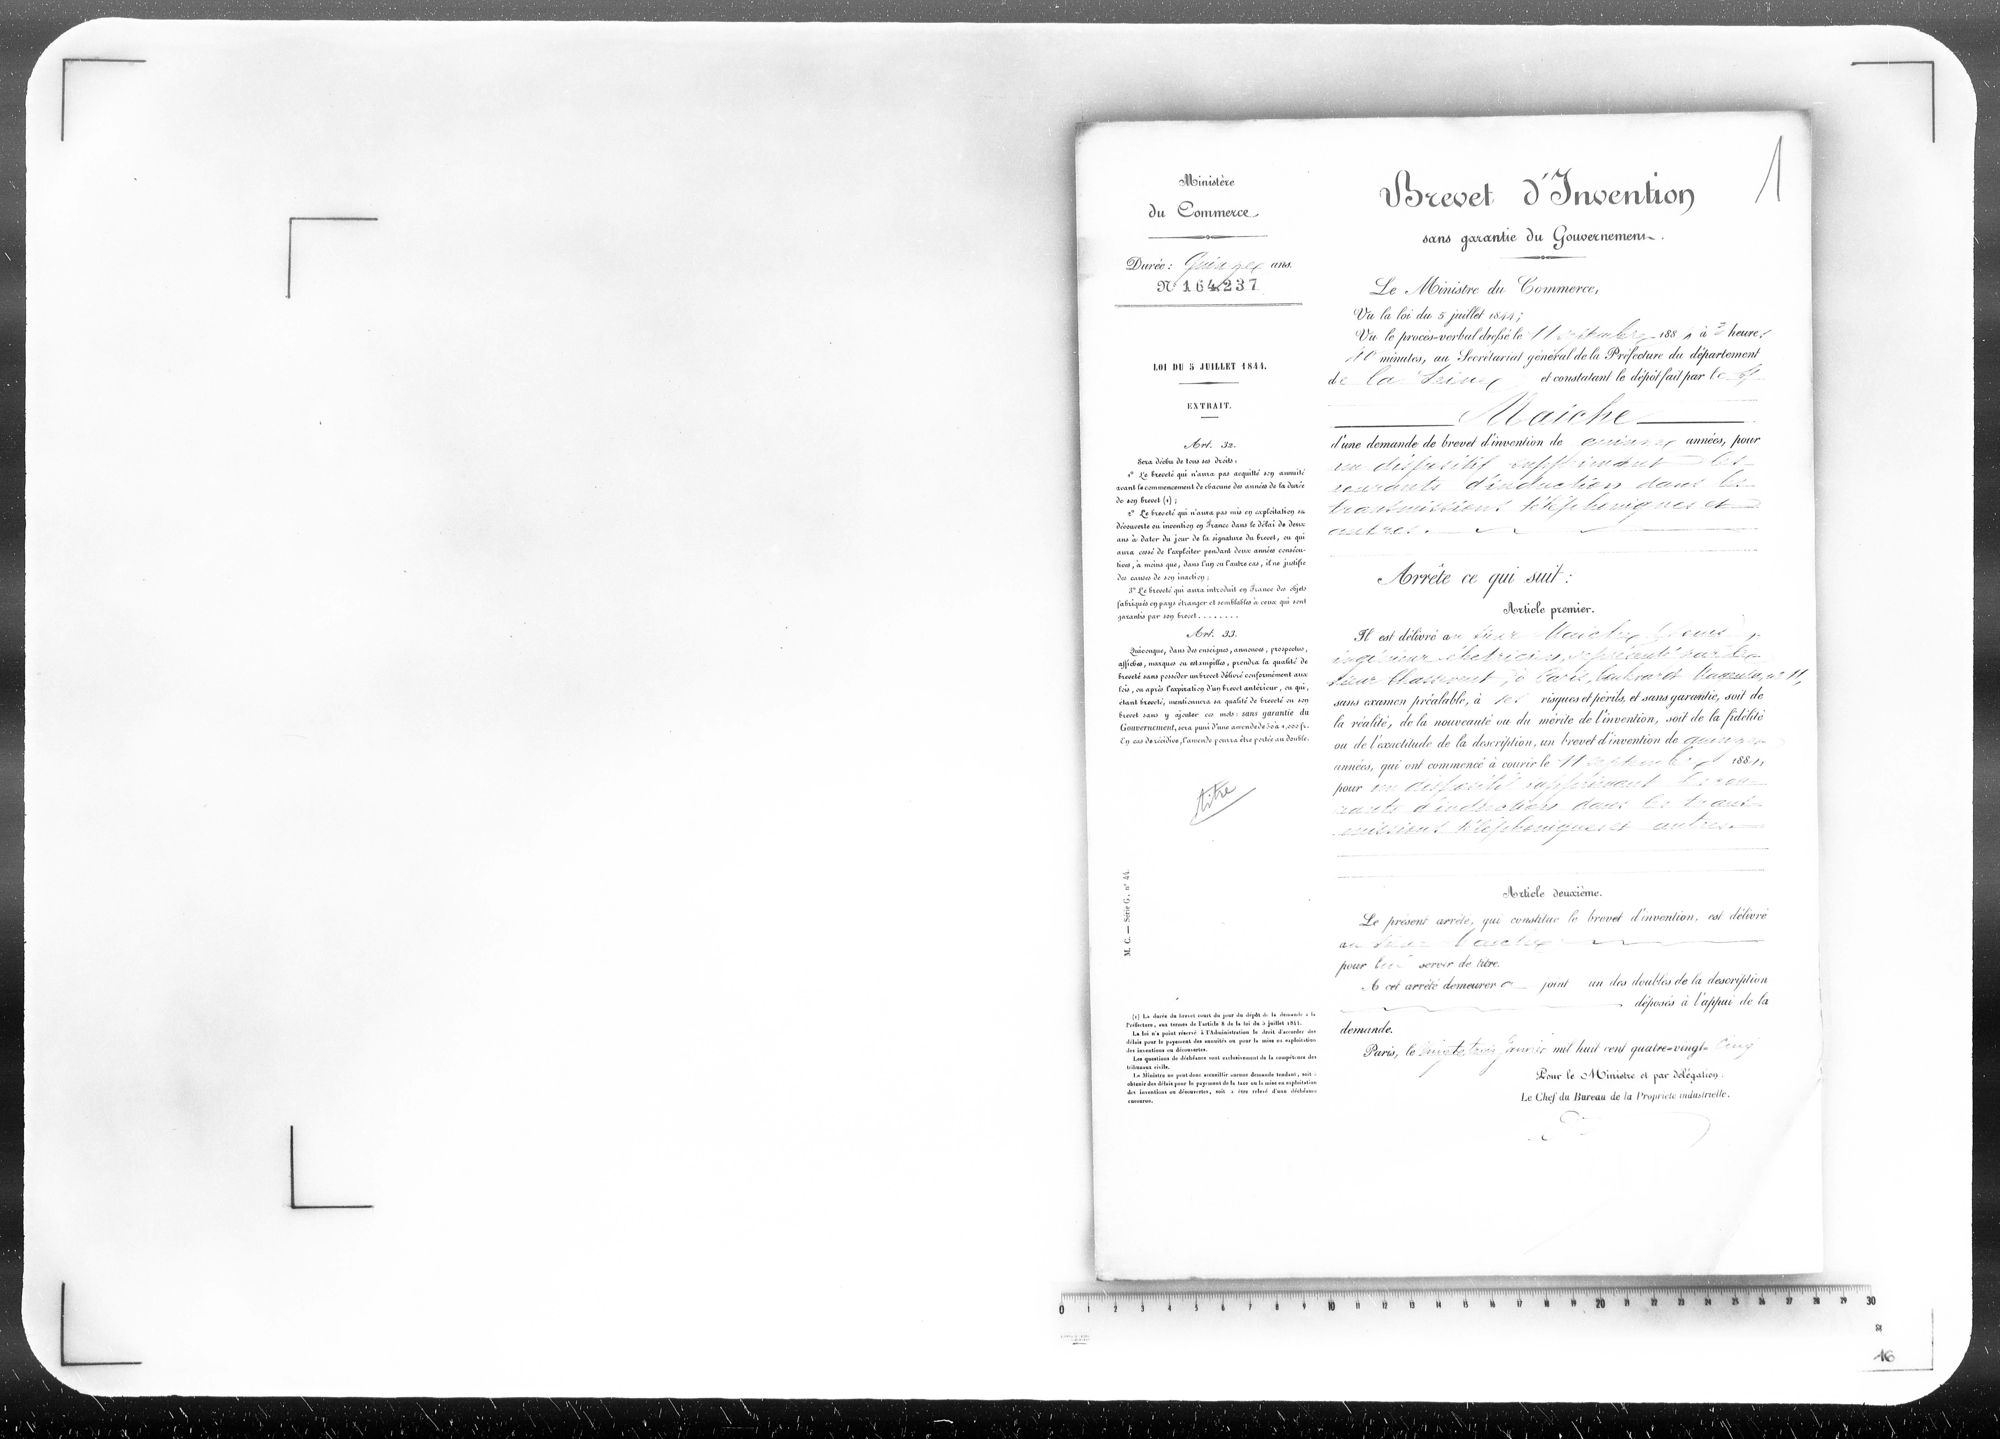 Ministère
du Commerce.
Durée : Quinze ans.
N° 164.237
LOI DU 5 JUILLET 1844.
EXTRAIT.
Art. 32.
Sera déchu de tous ses droits :
1° Le breveté qui n'aura pas acquitté son annuité
avant le commencement de chacune des années de la durée
de son brevet (1) ;
2° Le breveté qui n'aura pas mis en exploitation sa
découverte ou invention en France dans le délai de deux
ans à dater du jour de la signature du brevet, ou qui
aura cessé de l'exploiter pendant deux années consécu-
tives, à moins que, dans l'un ou l'autre cas, il ne justifie
des causes de son inaction ;
3° Le breveté qui aura introduit en France des objets
fabriqués en pays étranger et semblables à ceux qui sont
garantis par son brevet........
Art. 33.
Quiconque, dans des enseignes, annonces, prospectus,
affiches, marques ou estampilles, prendra la qualité de
breveté sans posséder un brevet délivré conformément aux
lois, ou après l'expiration d'un brevet antérieur, ou qui,
étant breveté, mentionnera sa qualité de breveté ou son
brevet sans y ajouter ces mots : sans garantie du
Gouvernement, sera puni d'une amende de 50 à 1,000 fr.
En cas de récidive, l'amende pourra être portée au double.
titre
M. C. — Série G, n° 44.
(1) La durée du brevet court du jour du dépôt de la demande à la
Préfecture, aux termes de l'article 8 de la loi du 5 juillet 1844.
La loi n'a point réservé à l'Administration le droit d'accorder des
délais pour le payement des annuités ou pour la mise en exploitation
des inventions ou découvertes.
Les questions de déchéance sont exclusivement de la compétence des
tribunaux civils.
Le Ministre ne peut donc accueillir aucune demande tendant, soit à
obtenir des délais pour le payement de la taxe ou la mise en exploitation
des inventions ou découvertes, soit à être relevé d'une déchéance
encourue.
1
Brevet d'Invention
sans garantie du Gouvernement.
Le Ministre du Commerce,
Vu la loi du 5 juillet 1844 ;
Vu le procès-verbal dressé le 11 septembre 1884 à 3 heures
40 minutes, au Secrétariat général de la Préfecture du département
de la Seine et constatant le dépôt fait par le Sr
Maiche
d'une demande de brevet d'invention de quinze années, pour
un dispositif supprimant les
courants d'induction dans les
transmissions téléphoniques et
autres.
Arrête ce qui suit :
Article premier.
Il est délivré au Sieur Maiche (Louis),
ingénieur électricien, représenté par le
Sieur Chassevent, à Paris, boulevart Magenta, n° 11,
sans examen préalable, à ses risques et périls, et sans garantie, soit de
la réalité, de la nouveauté ou du mérite de l'invention, soit de la fidélité
ou de l'exactitude de la description, un brevet d'invention de quinze
années, qui ont commencé à courir le 11 septembre 1884,
pour un dispositif supprimant les cou-
rants d'induction dans les trans-
missions téléphoniques et autres.
Article deuxième.
Le présent arrêté, qui constitue le brevet d'invention, est délivré
au Sieur Maiche
pour lui servir de titre.
A cet arrêté demeurera joint un des doubles de la description
déposés à l'appui de la
demande.
Paris, le vingt-trois Janvier mil huit cent quatre-vingt-cinq
Pour le Ministre et par délégation :
Le Chef du Bureau de la Propriété industrielle.
0 1 2 3 4 5 6 7 8 9 10 11 12 13 14 15 16 17 18 19 20 21 22 23 24 25 26 27 28 29 30
16